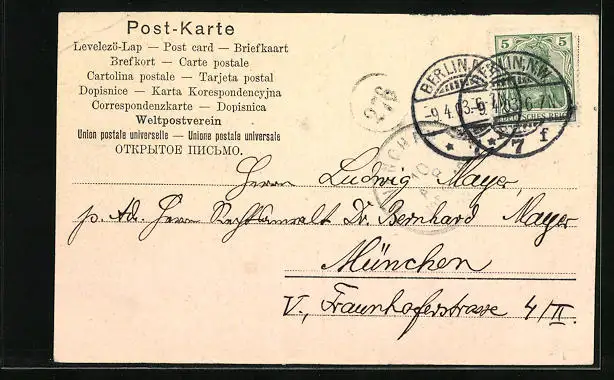 Post-Karte
Levelező-Lap — Post card — Briefkaart
Brefkort — Carte postale
Cartolina postale — Tarjeta postal
Dopisnice — Karta Korespondencyjna
Correspondenzkarte — Dopisnica
Weltpostverein
Union postale universelle — Unione postale universale
ОТКРЫТОЕ ПИСЬМО.
276
5 5
DEUTSCHES REICH
BERLIN, N.W.
9.4.03. 6-7N.
7 f
BERLIN, N.W.
9.4.03. 6-7N.
Herrn Ludwig Mayer,
p. Ad. Herrn Rechtsanwalt Dr. Bernhard Mayer
München
V., Fraunhoferstrasse 4/II.